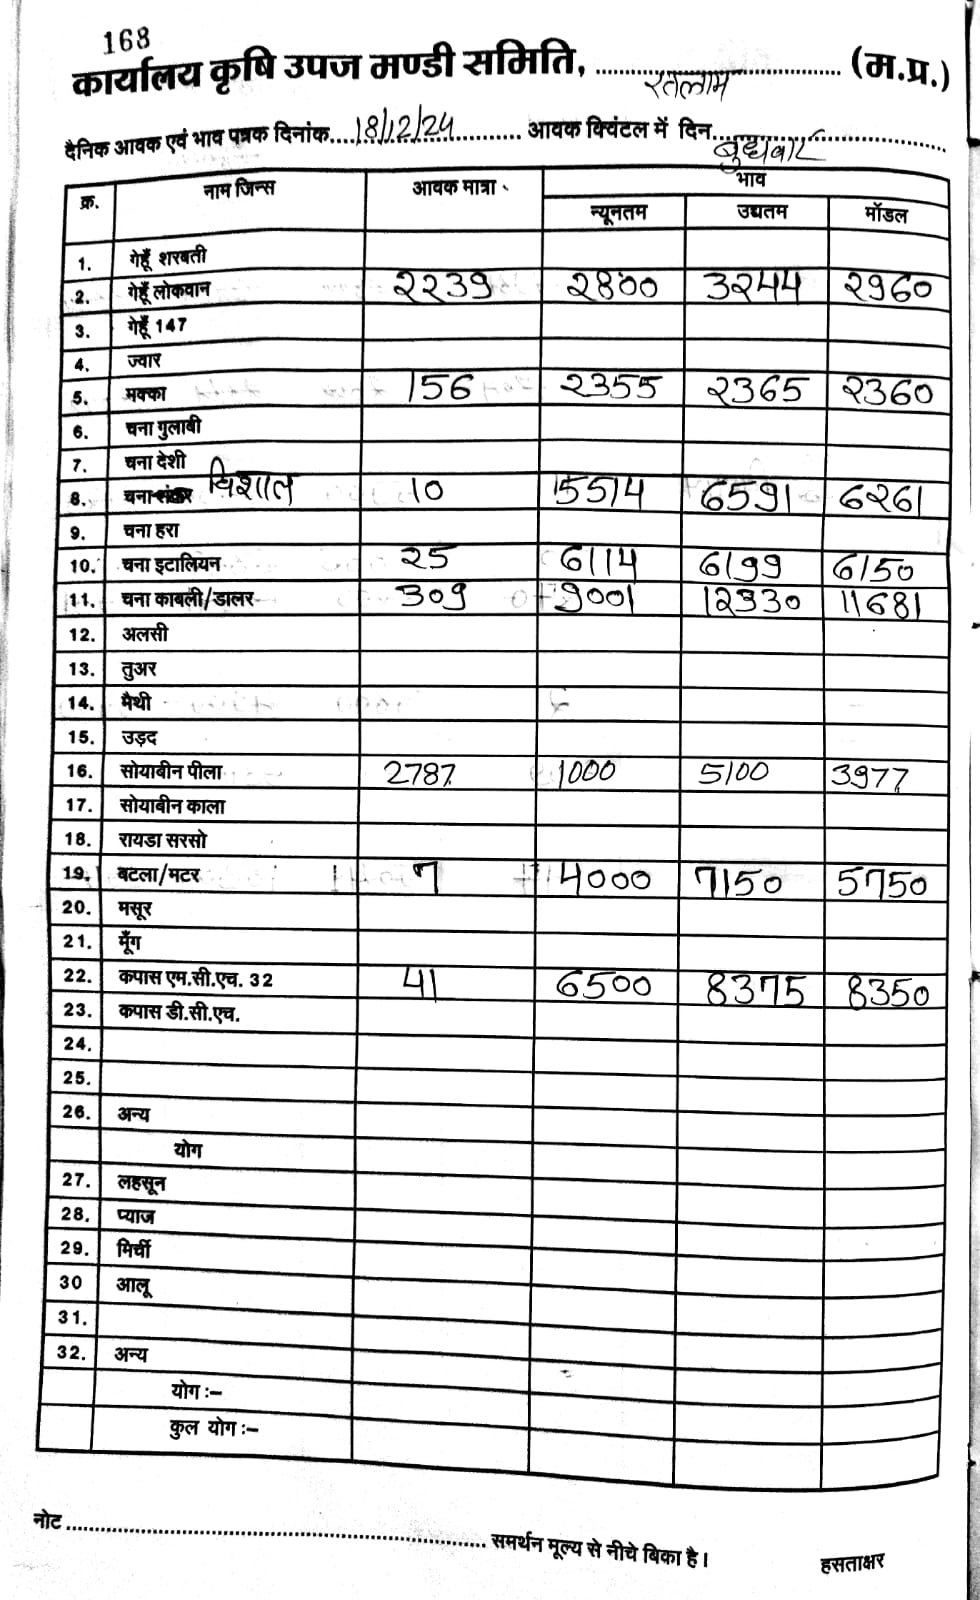 168
कार्यालय कृषि उपज मण्डी समिति, रतलाम (म.प्र.)
दैनिक आवक एवं भाव पत्रक दिनांक 18/12/24 आवक क्विंटल में दिन बुधवार
क्र. नाम जिन्स आवक मात्रा भाव
न्यूनतम उद्यतम मॉडल
1. गेहूँ शरबती
2. गेहूँ लोकवान 2239 2800 3244 2960
3. गेहूँ 147
4. ज्वार
5. मक्का 156 2355 2365 2360
6. चना गुलाबी
7. चना देशी
8. चना शंकर विशाल 10 5514 6591 6261
9. चना हरा
10. चना इटालियन 25 6114 6199 6150
11. चना काबली/डालर 309 9001 12330 11681
12. अलसी
13. तुअर
14. मैथी
15. उड़द
16. सोयाबीन पीला 2787 1000 5100 3977
17. सोयाबीन काला
18. रायडा सरसो
19. बटला/मटर 7 4000 7150 5750
20. मसूर
21. मूँग
22. कपास एम.सी.एच. 32 41 6500 8375 8350
23. कपास डी.सी.एच.
24.
25.
26. अन्य
योग
27. लहसून
28. प्याज
29. मिर्ची
30 आलू
31.
32. अन्य
योग :–
कुल योग :–
नोट समर्थन मूल्य से नीचे बिका है।
हसताक्षर